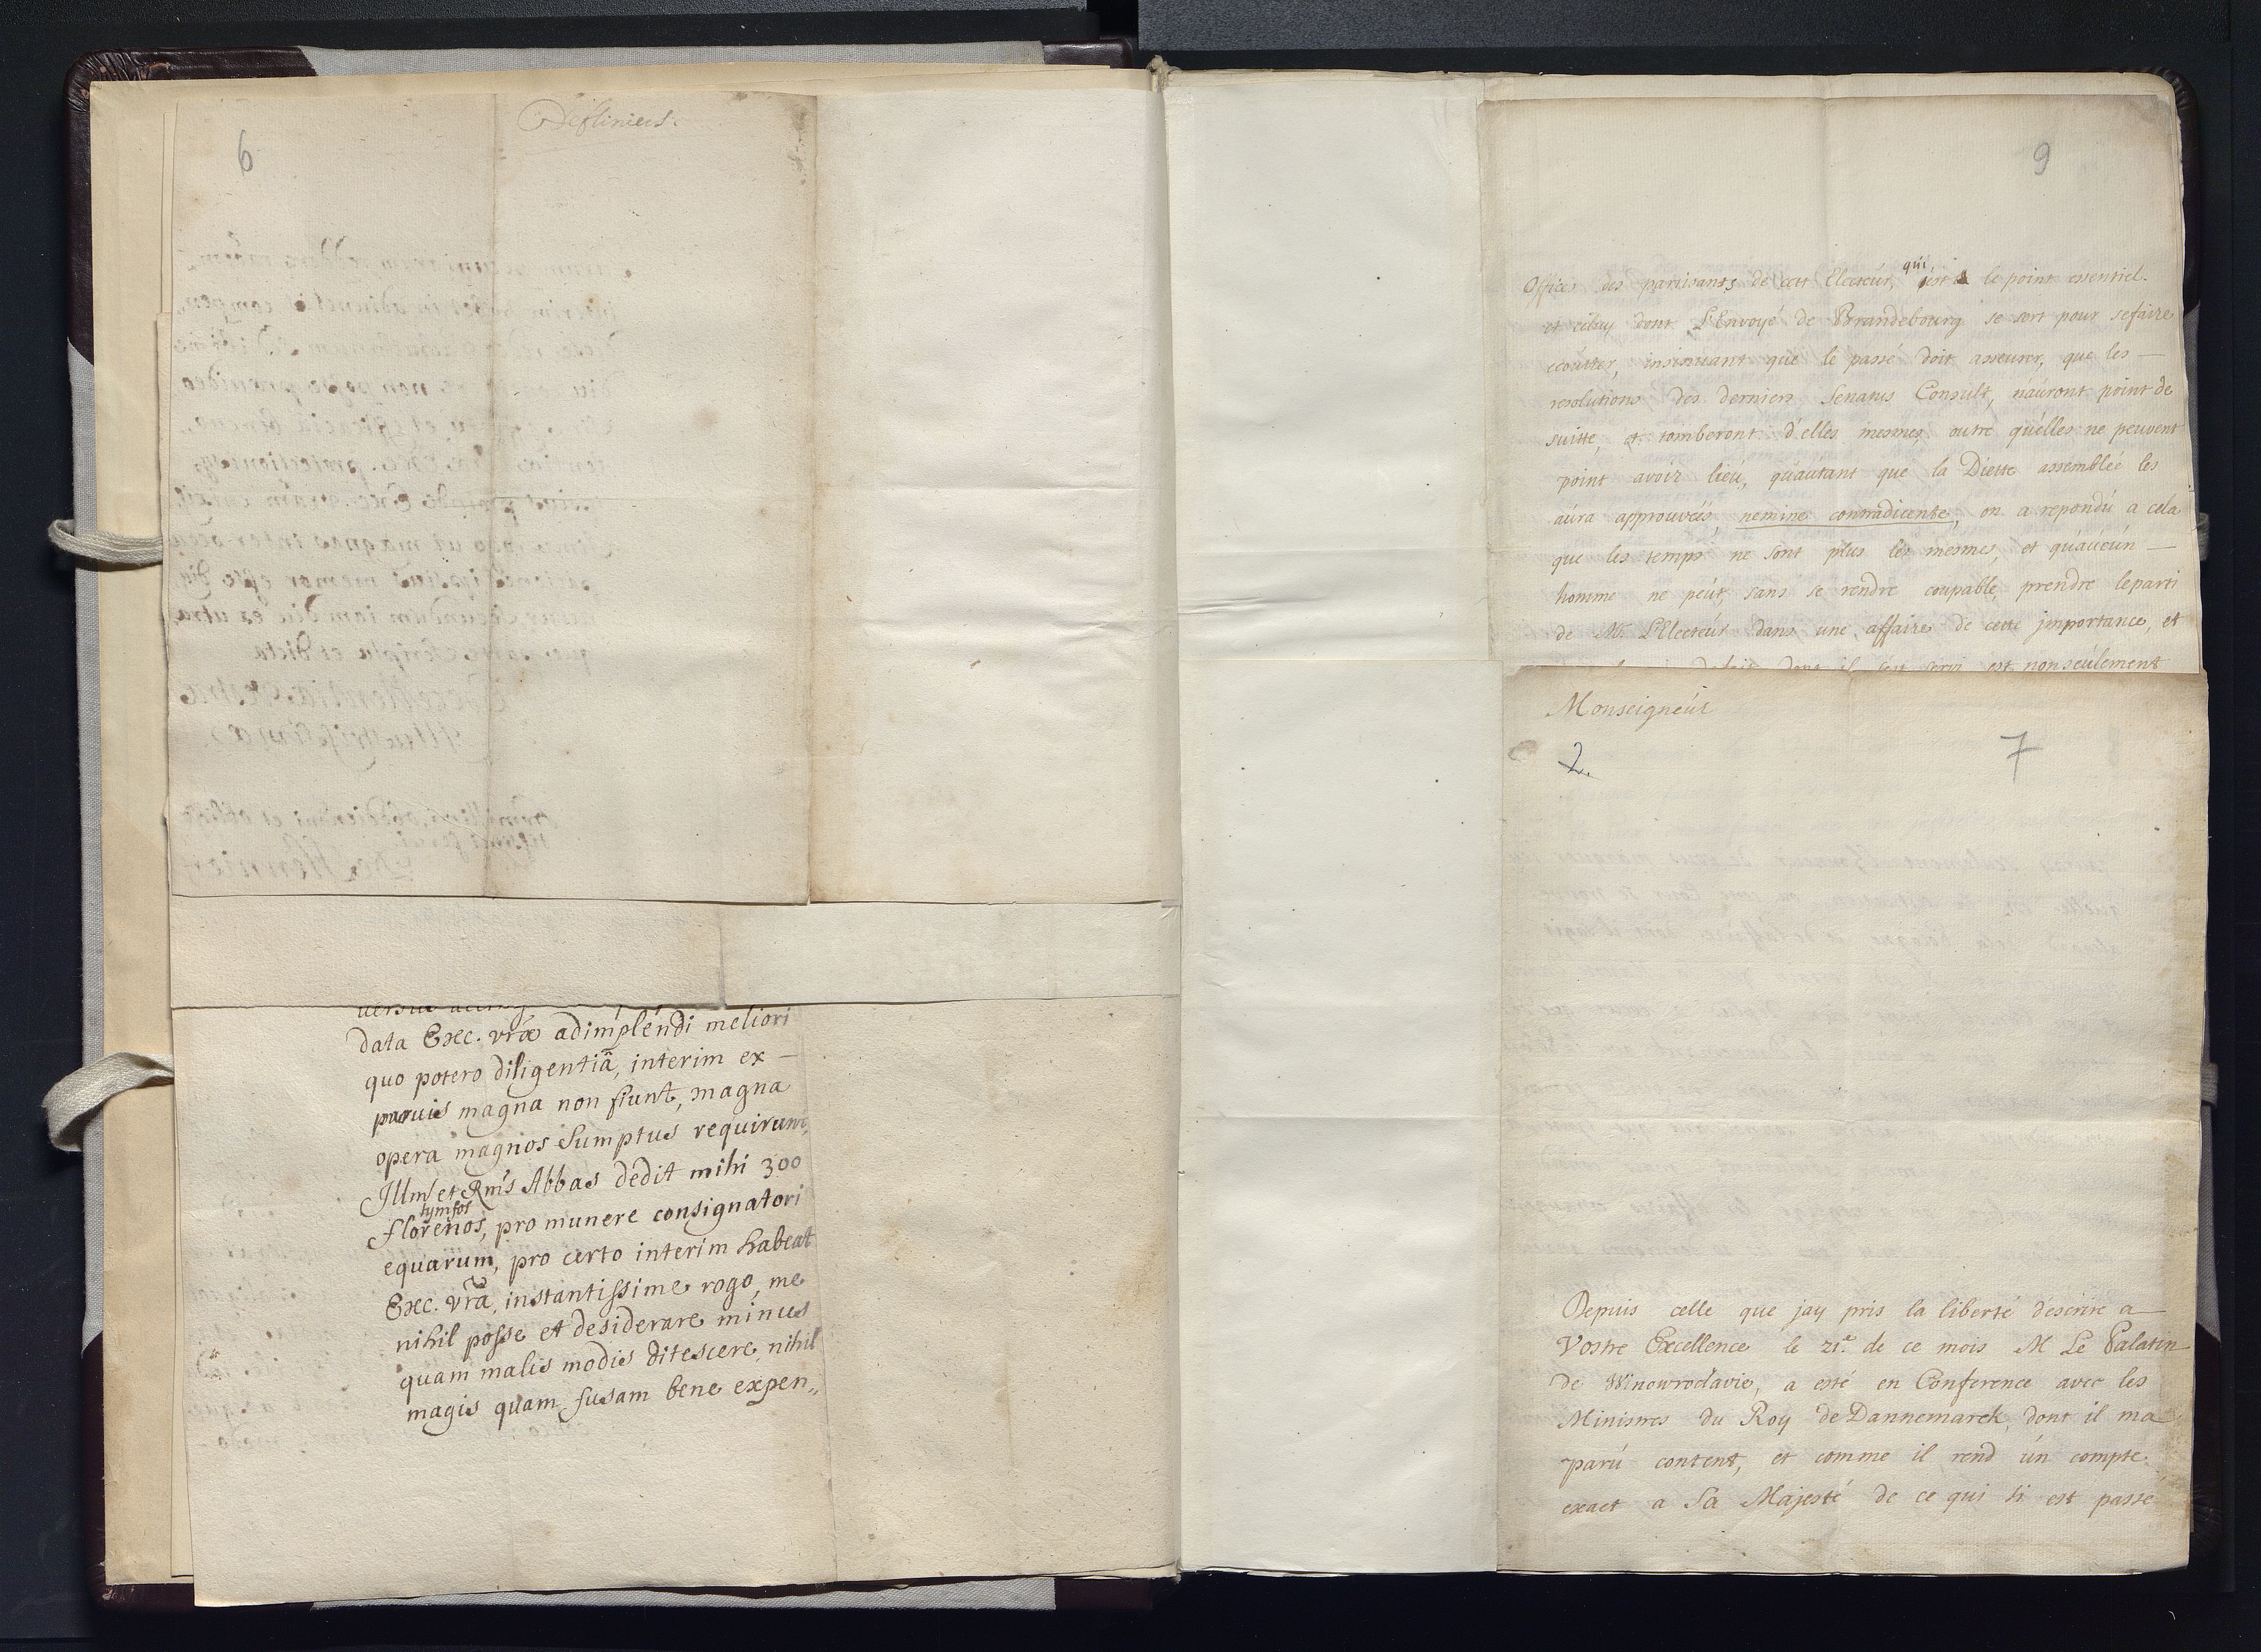 6
data Exc. vrã adimplendi meliori
quo potero diligentiâ, interim ex —
paruis magna non fiunt, magna
opera magnos sumptus requirunt,
Illm9 et Rm9s Abbas dedit mihi 300
tymfos
florenos, pro munere consignatori
equarum, pro certo interim habeat
Exc. vrã, instantissime rogo, me
nihil posse et desiderare minus
quam malis modis ditescere, nihil
magis quam fusam bene expen„
9
qui
Offices des partisants de cett Electeur, est le point essentiel.
et celuy dont L'Envoyé de Brandebourg se sert pour sefaire
ecoutter, insinuant que le passé doit asseurer, que les —
resolutions des derniers Senatus Consult, nauront point de
suitte, et tomberont d'elles mesmes, outre quelles ne peuvent
point avoir lieu, quautant que la Diette assembleé les
aura approuveés, nemine contradicente, on a repondu a cela
que les temps ne sont plus les mesmes, et quaucun —
homme ne peut, sans se rendre coupable, prendre leparti
de Mr. L'Electeur dans une affaire de cette jmportance, et
dont il sest servi est nonseulement
Monseigneur
2.
7
Depuis celle que jay pris la liberté descrire a
Vostre Excellence le 21e. de ce mois M Le Palatin
de Winowroclavie, a esté en Conference avec les
Ministres du Roy de Dannemarck, dont il ma
paru content, et comme il rend un compte
exact a Sa Majesté de ce qui si est passé